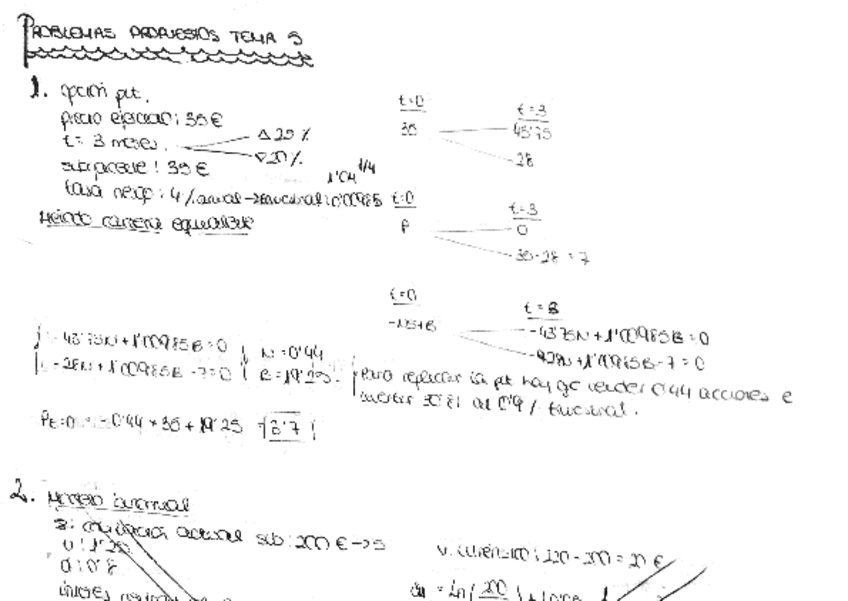 PROBLEMAS PROPUESTOS TEMA 5
1. opción put.
precio ejercicio: 35€
t = 3 meses. Δ 25%
▽ 20%
subyacente: 35€
1'04^1/4
tasa riesgo: 4% anual → trimestral: 0'00985
Método cartera equivalente
t=0
t=3
35
43'75
28
t=0
t=3
P
0
35-28 = 7
t=0
t=3
-NS+B
-43'75N + 1'00985B = 0
-28N + 1'00985B - 7 = 0
-43'75N + 1'00985B = 0
-28N + 1'00985B - 7 = 0
N = 0'44
B = 19'25.
Para replicar la put hay que vender 0'44 acciones e
invertir al trimestral.
Pt=0 = -0'44 * 35 + 19'25 = 3'7
2. Modelo binomial
S: cotización actual sub: 200 € → S
u: 1'25
d: 0'8
v. : 220 - 200 = 20 €
d1 = ln( 200